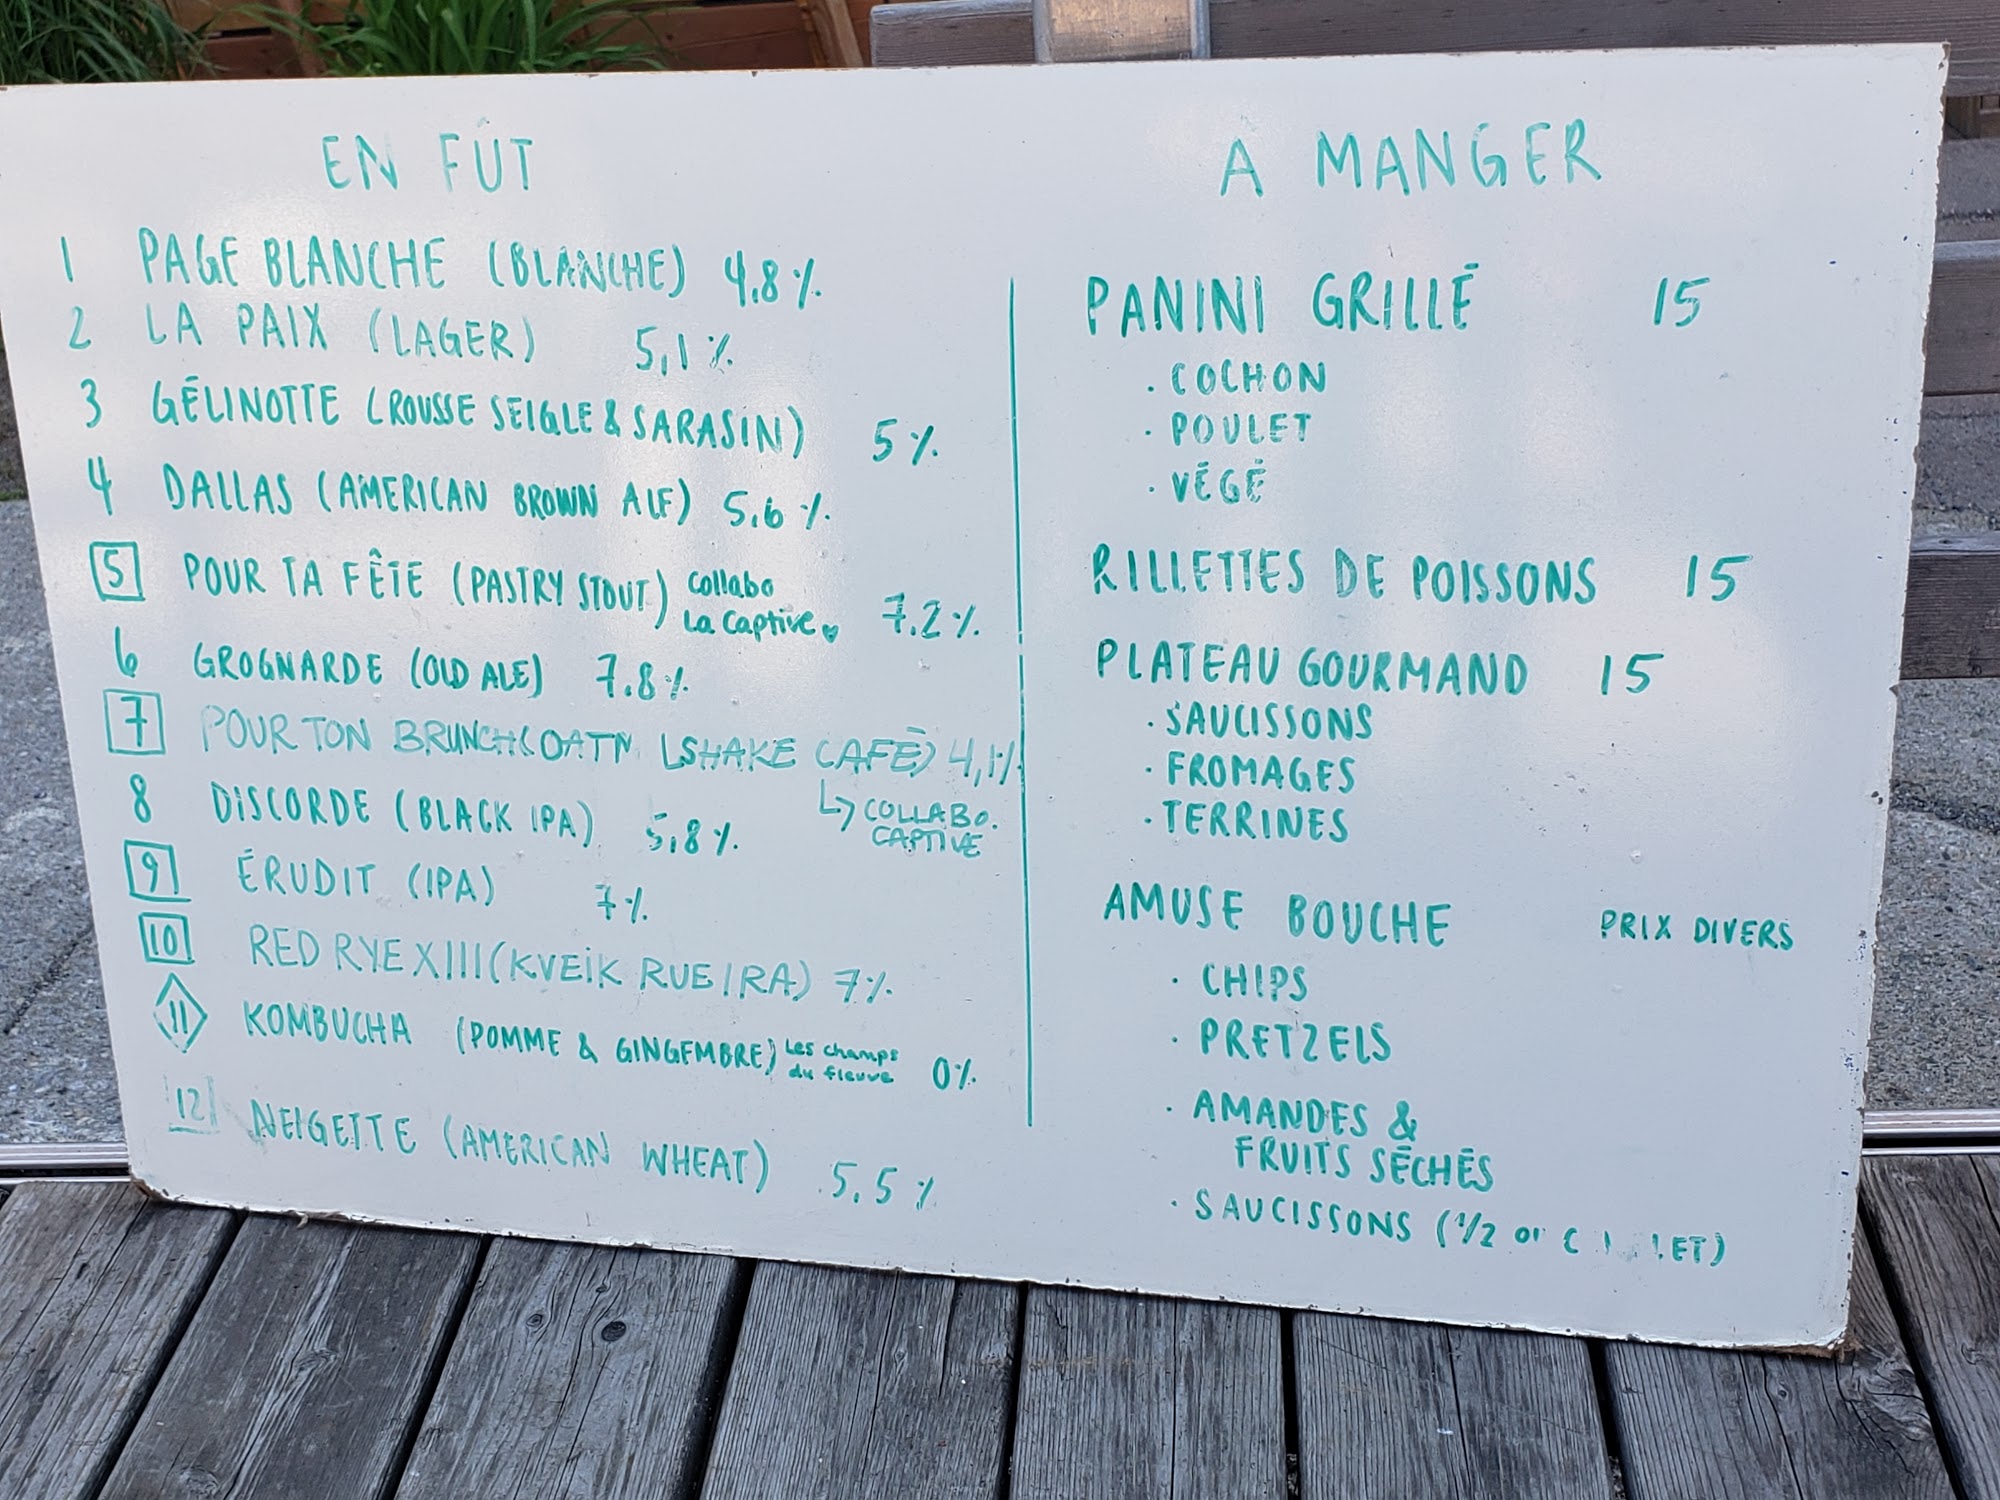 EN FÛT
1 PAGE BLANCHE (BLANCHE) 4,8%
2 LA PAIX (LAGER) 5,1%
3 GÉLINOTTE (ROUSSE SEIGLE & SARASIN) 5%
4 DALLAS (AMERICAN BROWN ALE) 5,6%
5 POUR TA FÊTE (PASTRY STOUT) Collabo La Captive 7.2%
6 GROGNARDE (OLD ALE) 7.8%
7 POUR TON BRUNCH SHAKE CAFÉ) 4,1%
8 DISCORDE (BLACK IPA) 5,8%
↳ COLLABO.
CAPTIVE
9 ÉRUDIT (IPA) 7%
10 RED RYE XIII (KVEIK 7%
11 KOMBUCHA (POMME & GINGEMBRE) Les champs du fleuve 0%
12 NEIGETTE (AMERICAN WHEAT) 5.5%
A MANGER
PANINI GRILLÉ 15
· COCHON
· POULET
· VÉGÉ
RILLETTES DE POISSONS 15
PLATEAU GOURMAND 15
· SAUCISSONS
· FROMAGES
· TERRINES
AMUSE BOUCHE PRIX DIVERS
· CHIPS
· PRETZELS
· AMANDES &
FRUITS SÉCHÉS
· SAUCISSONS (1/2